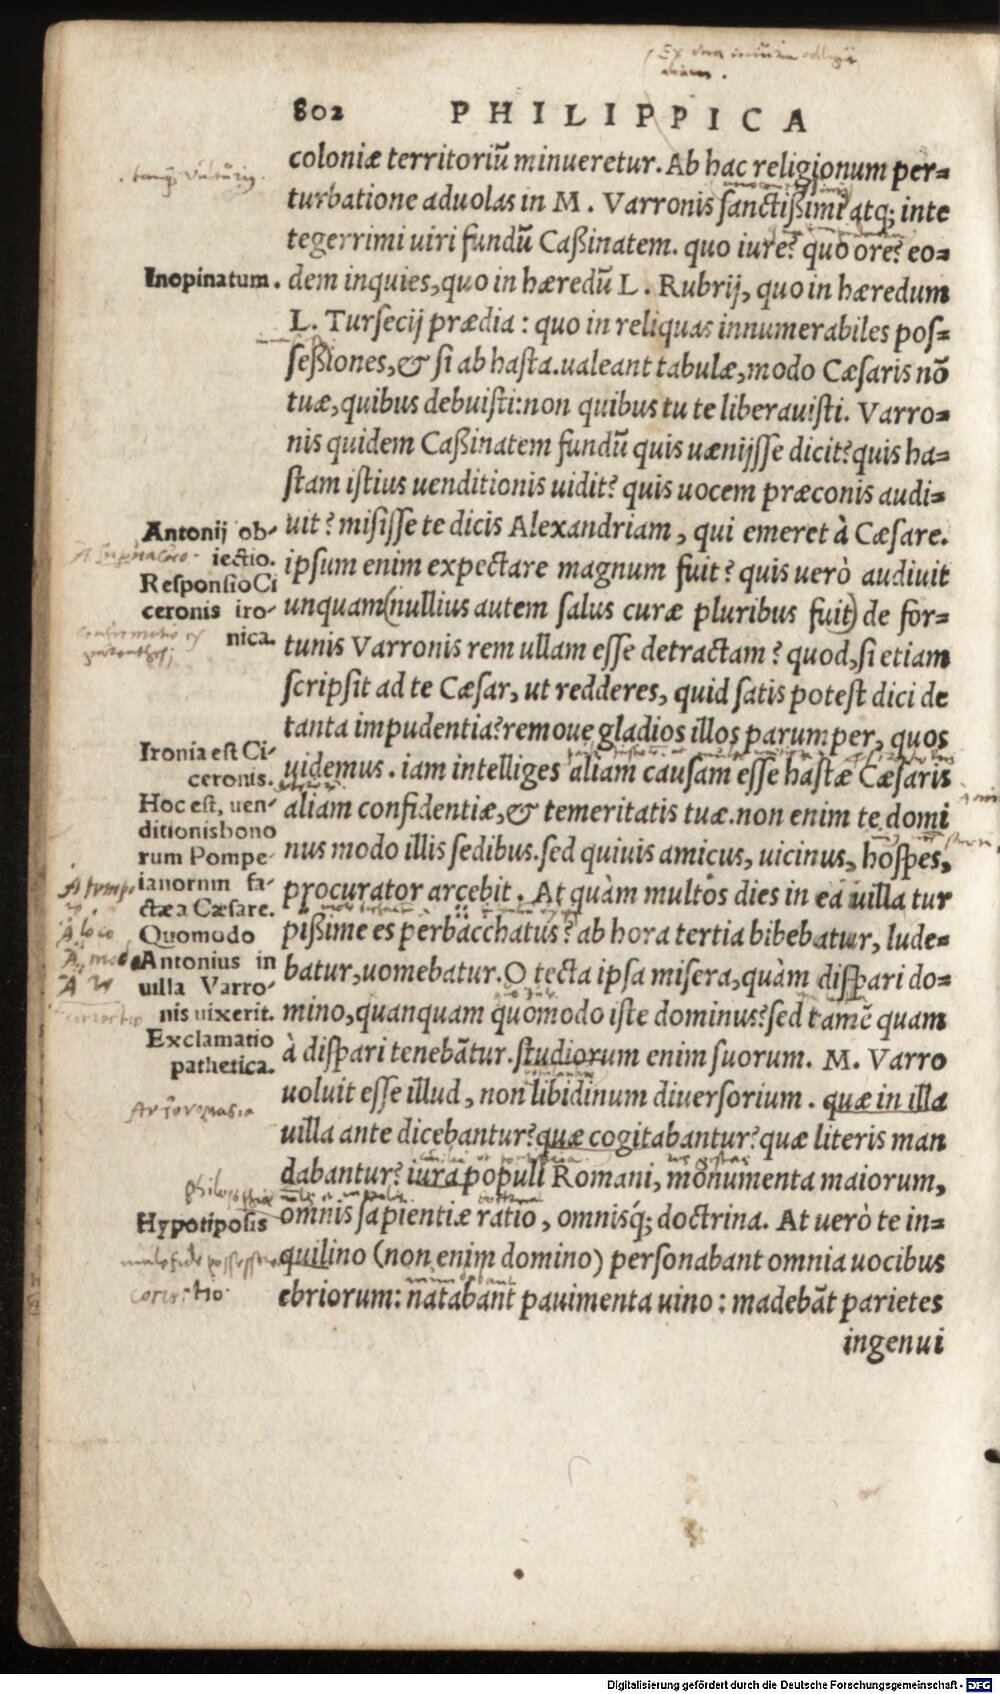 802 PHILIPPICA
coloniæ territoriũ minueretur. Ab hac religionum per=
turbatione aduolas in M. Varronis sanctißimi atq; inte
tegerrimi uiri fundũ Caßinatem. quo iure? quo ore? eo=
Inopinatum.
dem inquies, quo in hæredũ L. Rubrij, quo in hæredum
L. Tursecij prædia: quo in reliquas innumerabiles pos=
seßiones, & si ab hasta. ualeant tabulæ, modo Cæsaris nõ
tuæ, quibus debuisti: non quibus tu te liberauisti. Varro=
nis quidem Caßinatem fundũ quis uænijsse dicit? quis ha=
stam istius uenditionis uidit? quis uocem præconis audi=
Antonij ob-
iectio.
Responsio Ci
ceronis iro-
nica.
uit? misisse te dicis Alexandriam, qui emeret à Cæsare.
ipsum enim expectare magnum fuit? quis uerò audiuit
unquam (nullius autem salus curæ pluribus fuit) de for=
tunis Varronis rem ullam esse detractam? quod, si etiam
scripsit ad te Cæsar, ut redderes, quid satis potest dici de
tanta impudentia? remoue gladios illos parumper, quos
Ironia est Ci-
ceronis.
Hoc est, uen-
ditionis bono
rum Pompe-
ianorum fa-
ctæ a Cæsare.
Quomodo
Antonius in
uilla Varro-
nis uixerit.
Exclamatio
pathetica.
uidemus. iam intelliges aliam causam esse hastæ Cæsaris
aliam confidentiæ, & temeritatis tuæ. non enim te domi
nus modo illis sedibus. sed quiuis amicus, uicinus, hospes,
procurator arcebit. At quàm multos dies in ea uilla tur
pißime es perbacchatus? ab hora tertia bibebatur, lude=
batur, uomebatur. O tecta ipsa misera, quàm dispari do=
mino, quanquam quomodo iste dominus? sed tamẽ quam
à dispari tenebãtur. studiorum enim suorum. M. Varro
uoluit esse illud, non libidinum diuersorium. quæ in illa
uilla ante dicebantur? quæ cogitabantur? quæ literis man
dabantur? iura populi Romani, monumenta maiorum,
Hypotiposis
omnis sapientiæ ratio, omnisq́; doctrina. At uerò te in=
quilino (non enim domino) personabant omnia uocibus
ebriorum: natabant pauimenta uino: madebãt parietes
ingenui
Digitalisierung gefördert durch die Deutsche Forschungsgemeinschaft - DFG